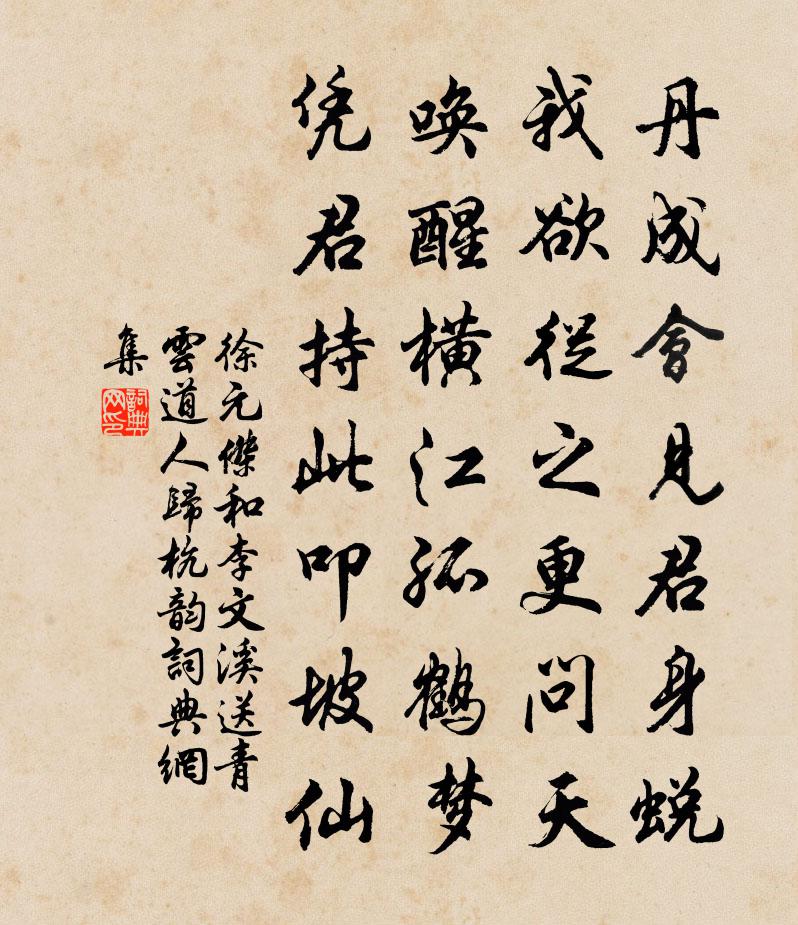 丹成會見君身蜕
我欲從之更问天
唤醒横江孤鶴梦
凭君持此叩坡仙
徐元傑和李文溪送青
雲道人歸杭韵詞典網
集
詞典
网印